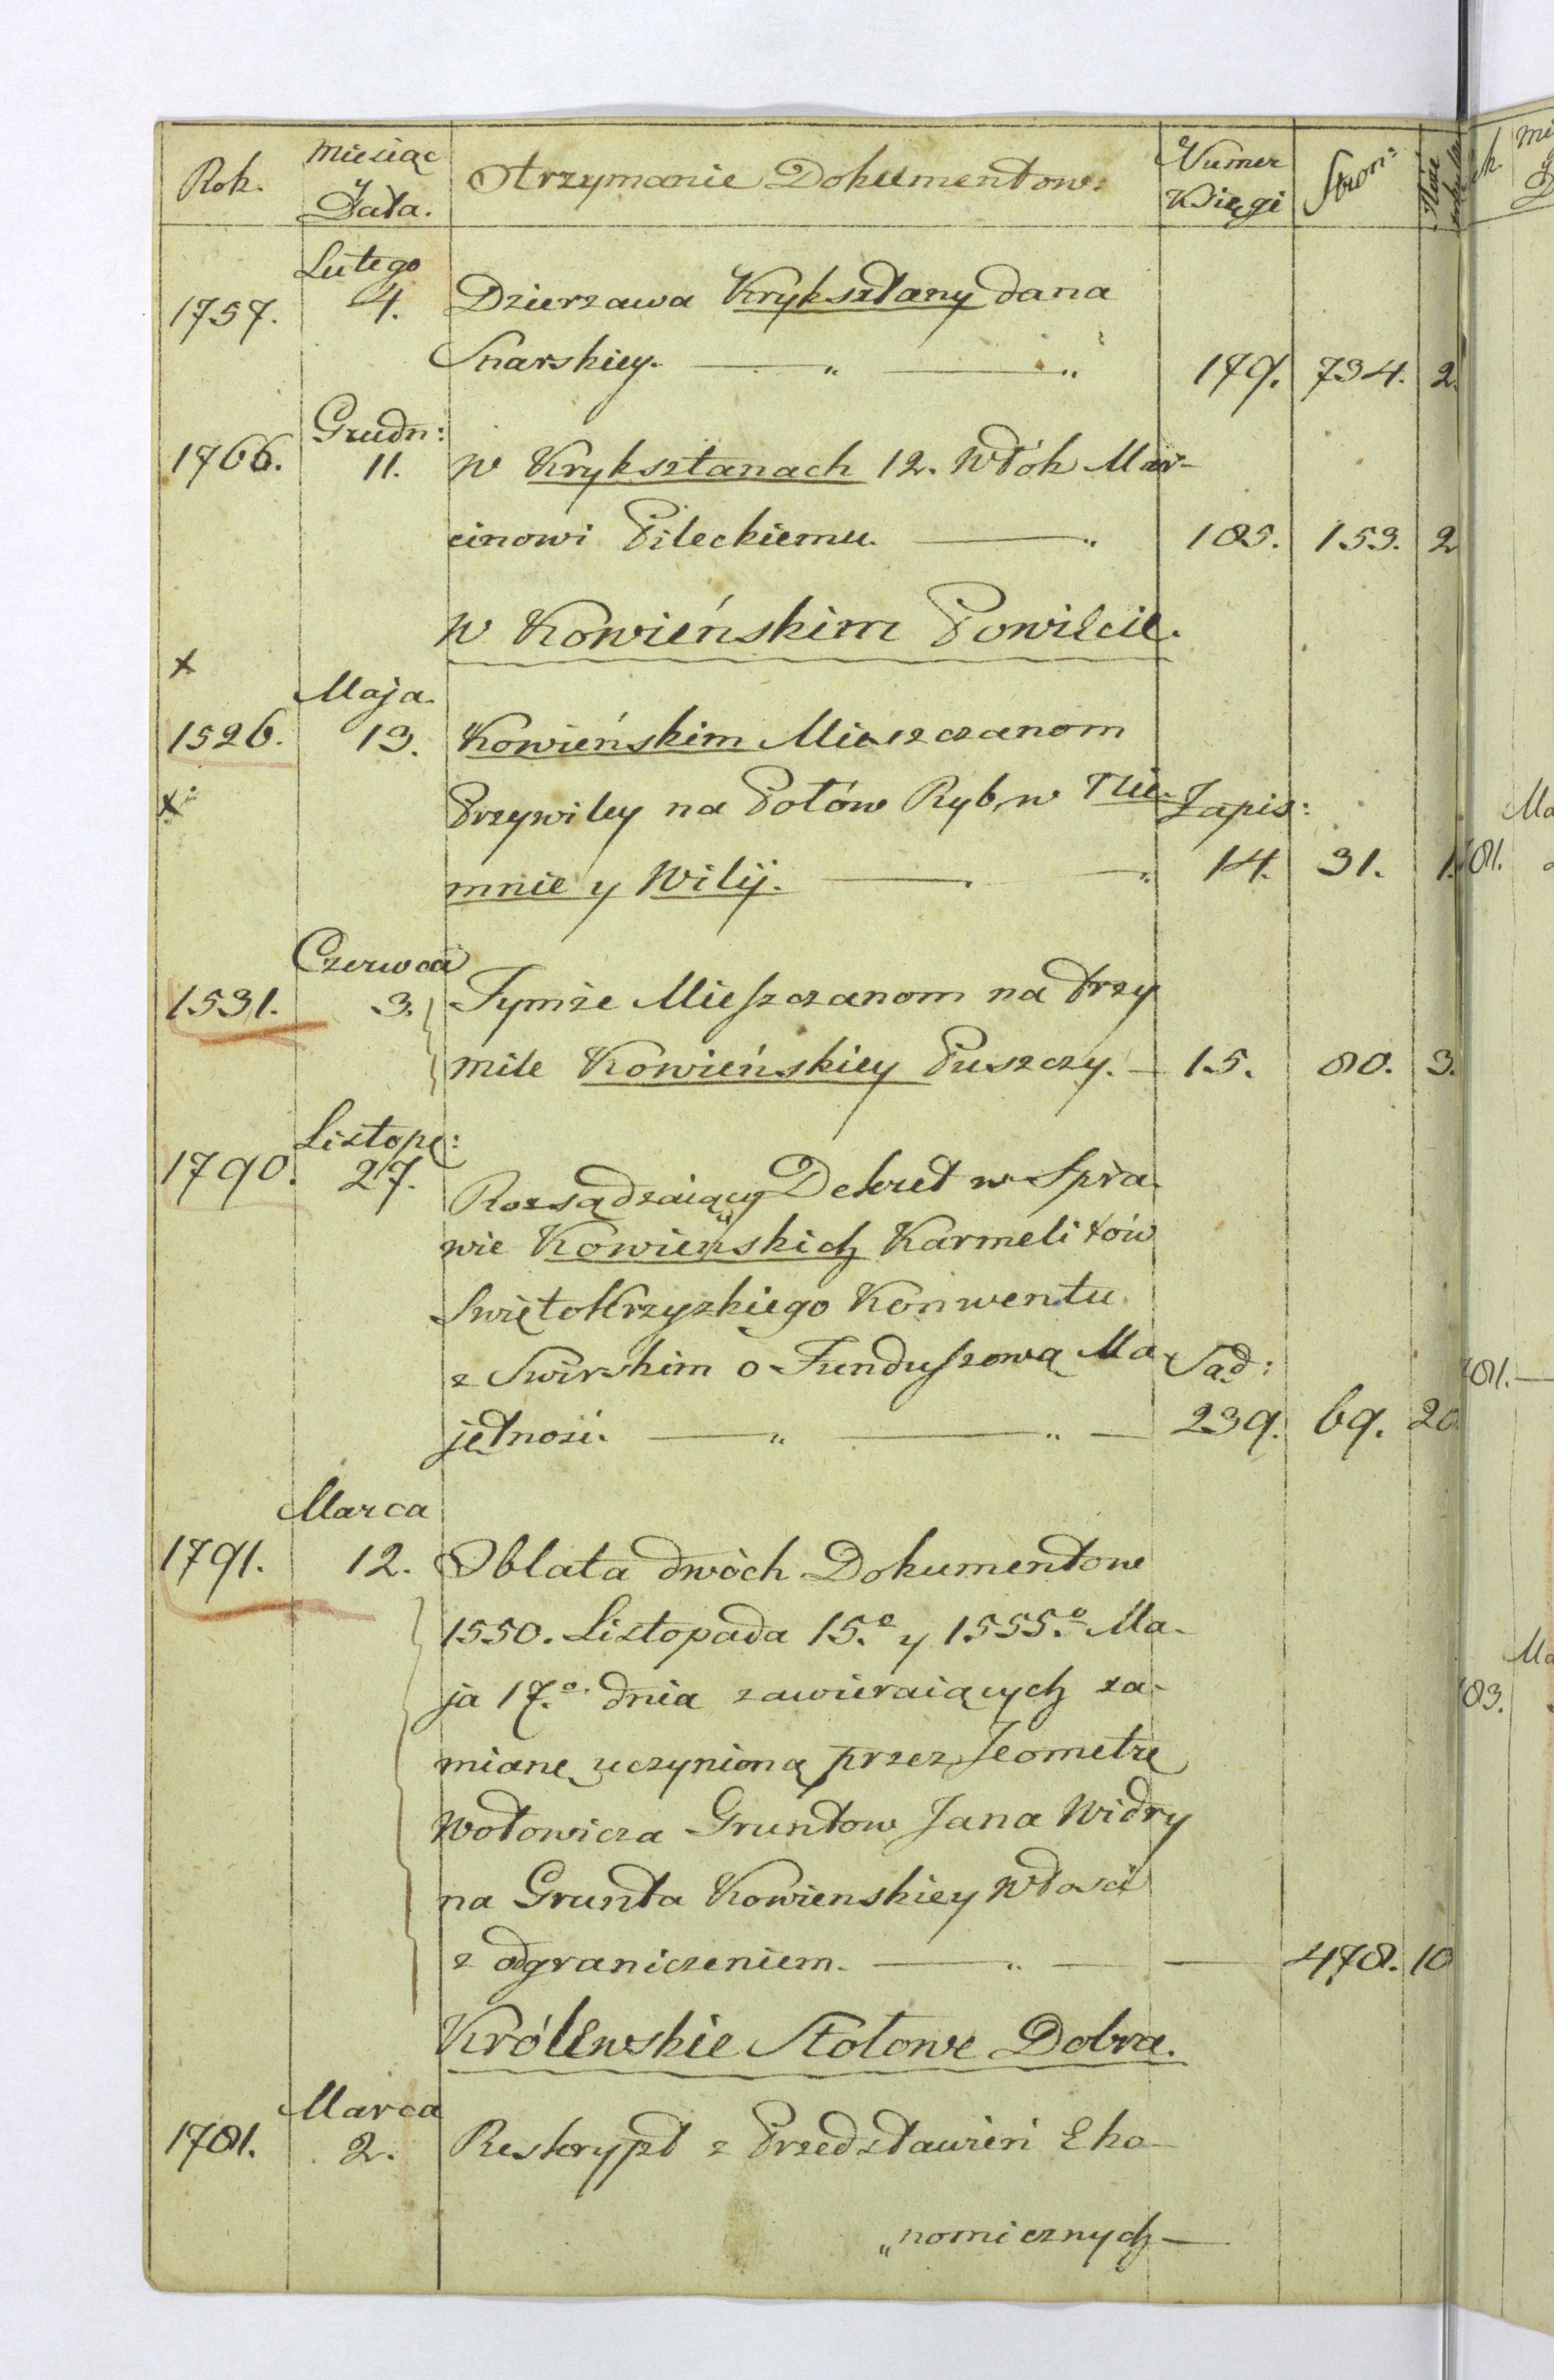 Rok. Miesiąc y Data. Otrzymanie Dokumentow: Numer Księgi Stron:
Lutego
1757. 4. Dzierzawa Kryksztany dana
Snarskiey. 179. 734. 2.
Grudn:
1766. 11. w Kryksztanach 12. Włók Mar-
cinowi Pileckiemu. 185. 153. 2
w Kowieńskim Powiecie.
x
Maja.
1526. 13. Kowieńskim Mieszczanom
x Przywiley na Połów Ryb, w Nie- Zapis:
mnie y Wilij. 14. 31. 1.
Czerwca
1531. 3. Tymże Mieszczanom na trzy
mile Kowieńskiey Puszczy. 15. 80. 3.
Listopa:
1790. 27. Rozsądzaiący Dekret w Spra-
wie Kowieńskich Karmelitów
SwiętoKrzyzkiego Konwentu
z Swirskim o Funduszową Ma- Sąd:
jętność. 239. 69. 20
Marca
1791. 12. Oblata dwóch Dokumentow
1550. Listopada 15.º y 1555.º Ma-
ja 17.º dnia zawieraiących za-
mianę uczynioną przez Jeometrę
Wołowicza Gruntow Jana Widry
na Grunta Kowienskiey Włosci
z odgraniczeniem. 478. 10
Królewskie Stołowe Dobra.
Marca
1781. 2. Reskrypt z Przedstawień Eko-
„nomicznych